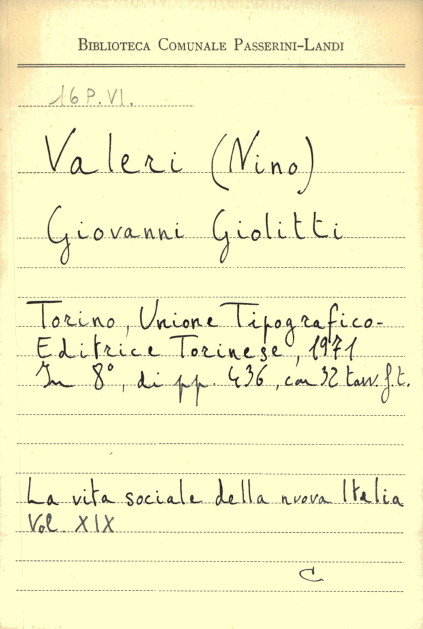 BIBLIOTECA COMUNALE PASSERINI-LANDI
16 P. VI.
Valeri (Nino)
Giovanni Giolitti
Torino, Unione Tipografico-
Editrice Torinese, 1971
In 8°, di pp. 436, con 32 tavv. f.t.
La vita sociale della nuova Italia
Vol. XIX
C